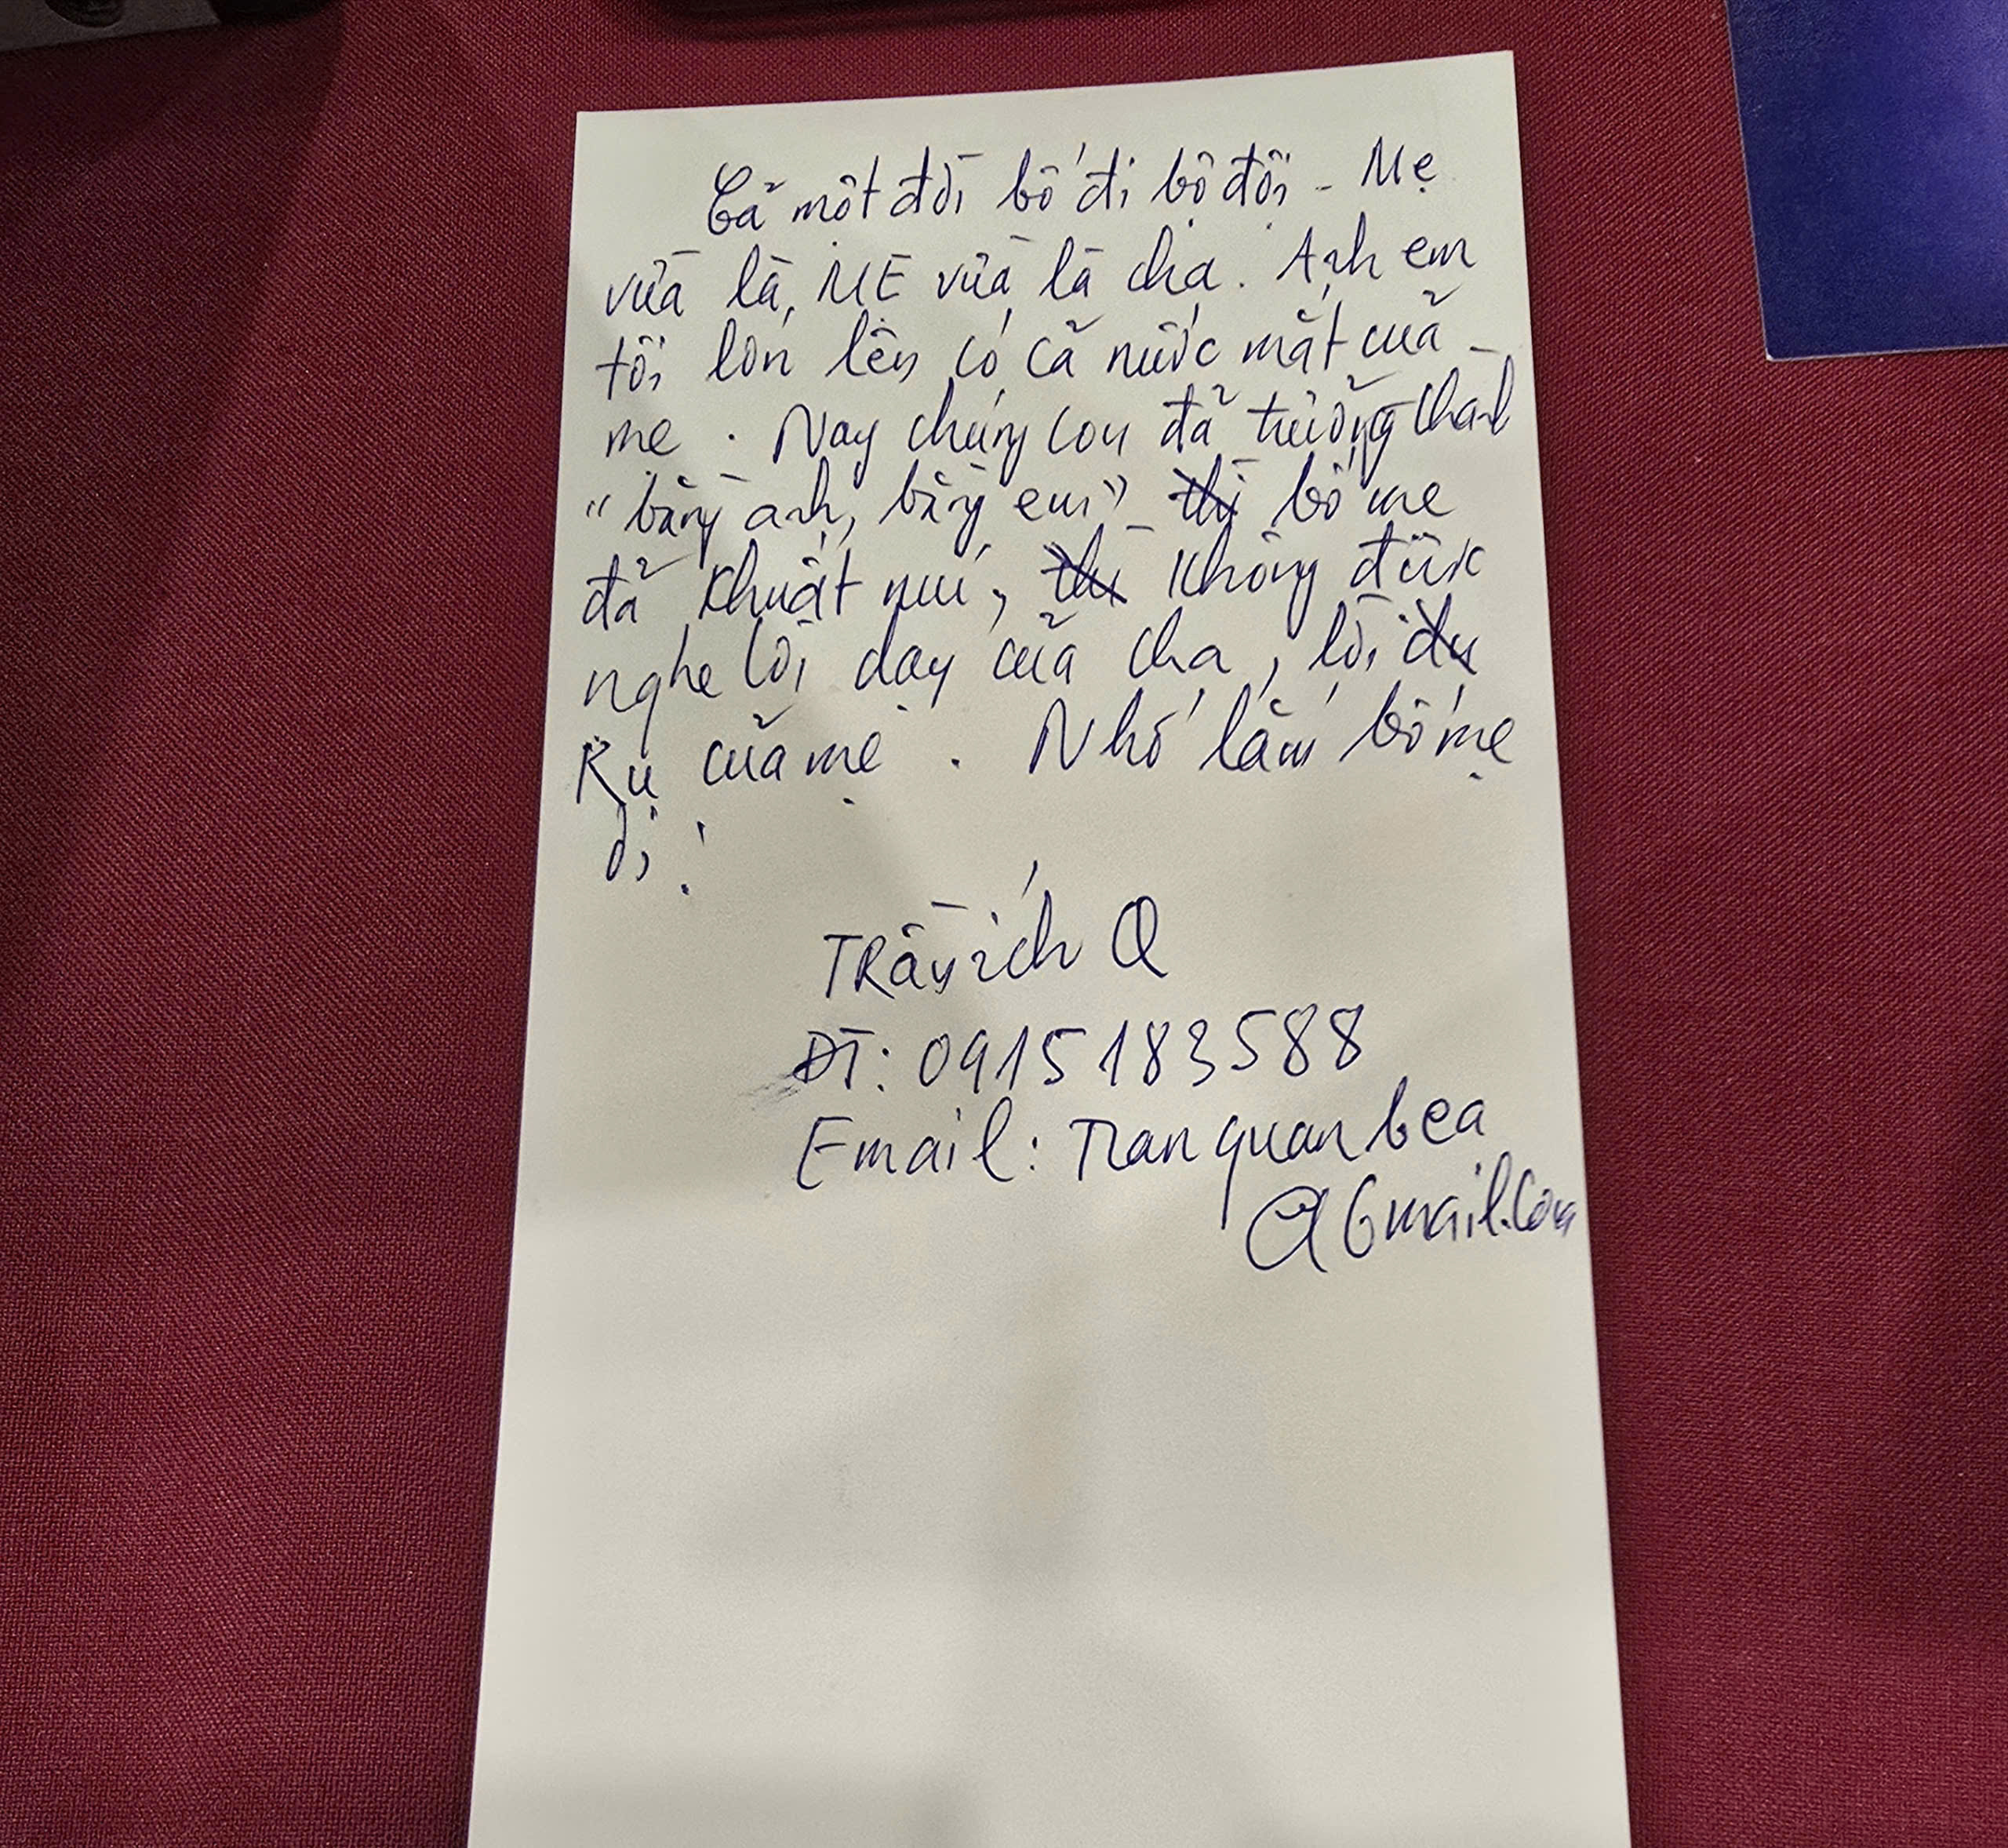 Cả một đời bố đi bộ đội - Mẹ
vừa là MẸ vừa là cha. Anh em
tôi lớn lên có cả nước mắt của
mẹ. Nay chúng con đã trưởng thành
"bằng anh, bằng em" thì bố mẹ
đã khuất núi, thì không được
nghe lời dạy của cha, lời du
Ru của mẹ. Nhớ lắm bố mẹ
ơi!
TRần ích Q
ĐT: 0915183588
Email: Tranquanbea
@Gmail.Com